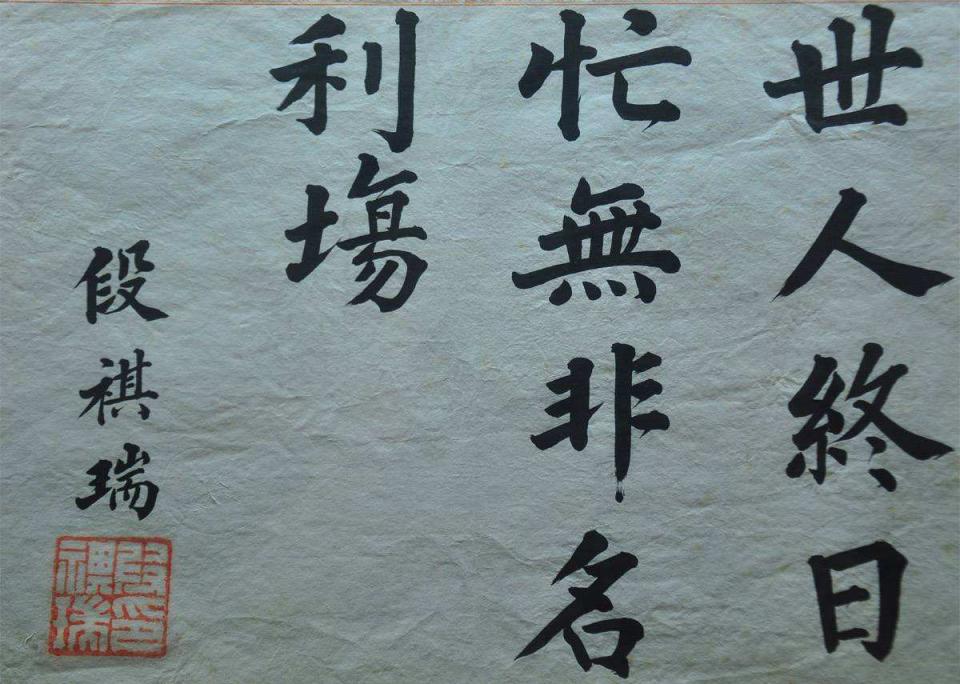 世人終日
忙無非名
利塲
段祺瑞
段印
祺瑞